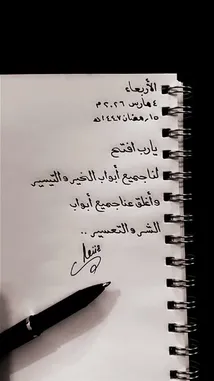 الأربعاء
٤ مارس ٢٠٢٦ م
١٥ رمضان ١٤٤٧ هـ
يارب افتح
لنا جميع أبواب الخير والتيسير
وأغلق عنا جميع أبواب
الشر والتعسير ..